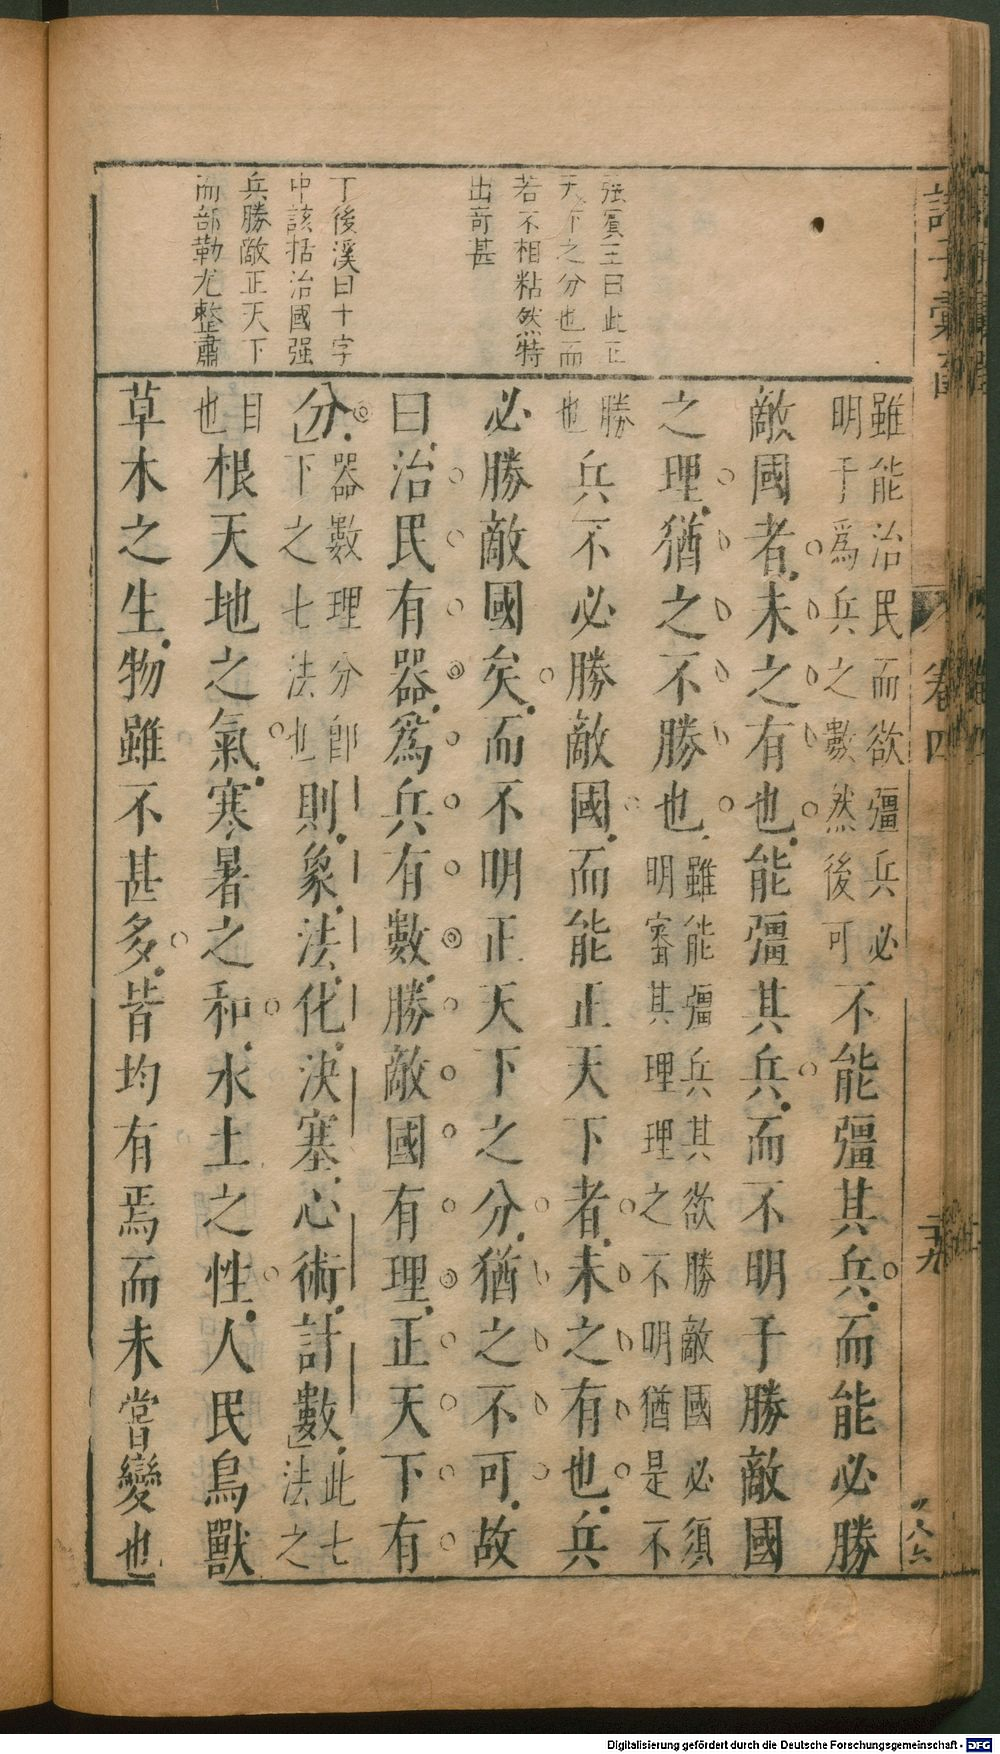 強賓王曰此正
天下之分也而
若不相粘然特
出奇甚
丁後溪曰十字
中該括治國强
兵勝敵正天下
而部勒尤整肅
雖能治民而欲彊兵必
明于爲兵之數然後可
不能彊其兵而能必勝
敵國者未之有也能彊其兵而不明于勝敵國
之理猶之不勝也
雖能彊兵其欲勝敵國必須
明審其理理之不明猶是不
勝
也
兵不必勝敵國而能正天下者未之有也兵
必勝敵國矣而不明正天下之分猶之不可故
曰治民有器爲兵有數勝敵國有理正天下有
分
器數理分即
下之七法也
則象法化決塞心術計數
此七
法之
目
也
根天地之氣寒暑之和水土之性人民鳥獸
草木之生物雖不甚多皆均有焉而未嘗變也
卷四
二十九
Digitalisierung gefördert durch die Deutsche Forschungsgemeinschaft - DFG